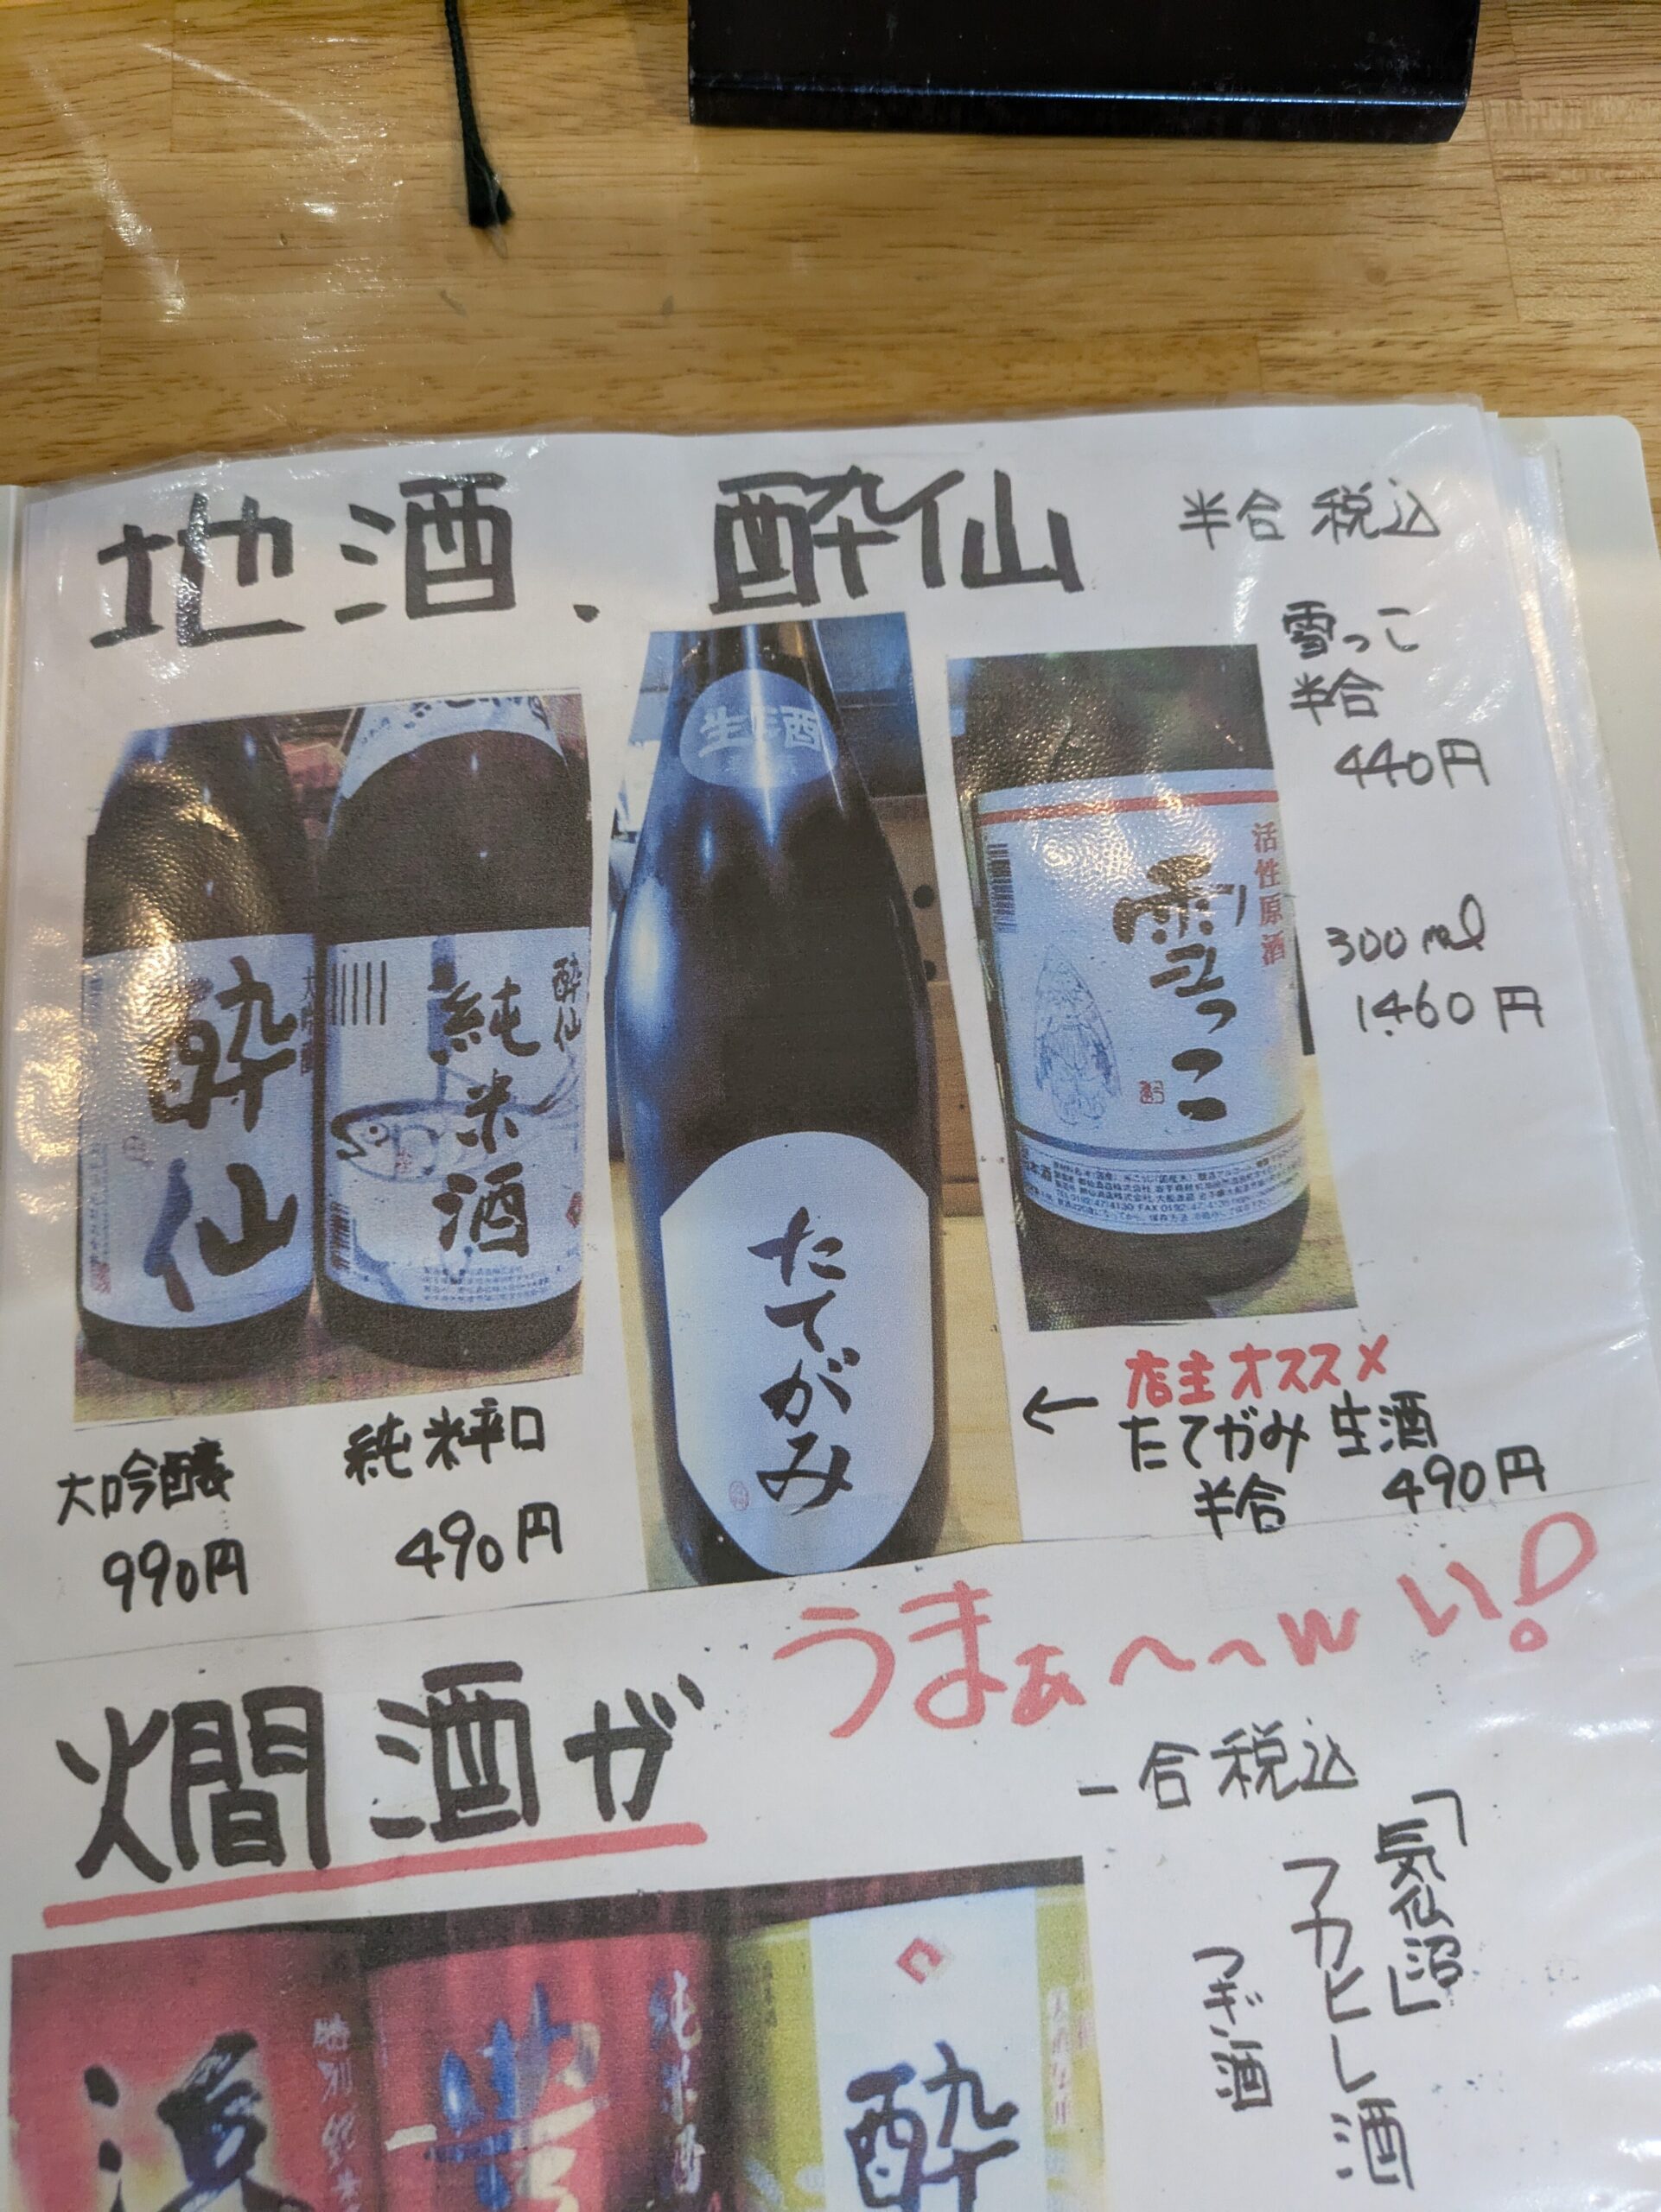 地酒、酔仙
半合 税込
雪っこ
半合
440円
300ml
1460円
酔仙
純米酒
酔仙
生酒
たてがみ
活性原酒
雪っこ
大吟醸
990円
純米辛口
490円
← 店主オススメ
たてがみ 生酒
半合 490円
燗酒が
うまぁ〜〜wい!
一合税込
「気仙沼」
フカヒレ酒
フギン酒
特別純米
豊
純米酒
酔